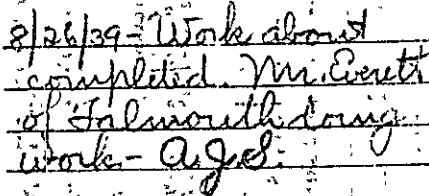 8/26/39 - Work about
completed. Mr. Everett
of Falmouth doing
work - A.J.S.